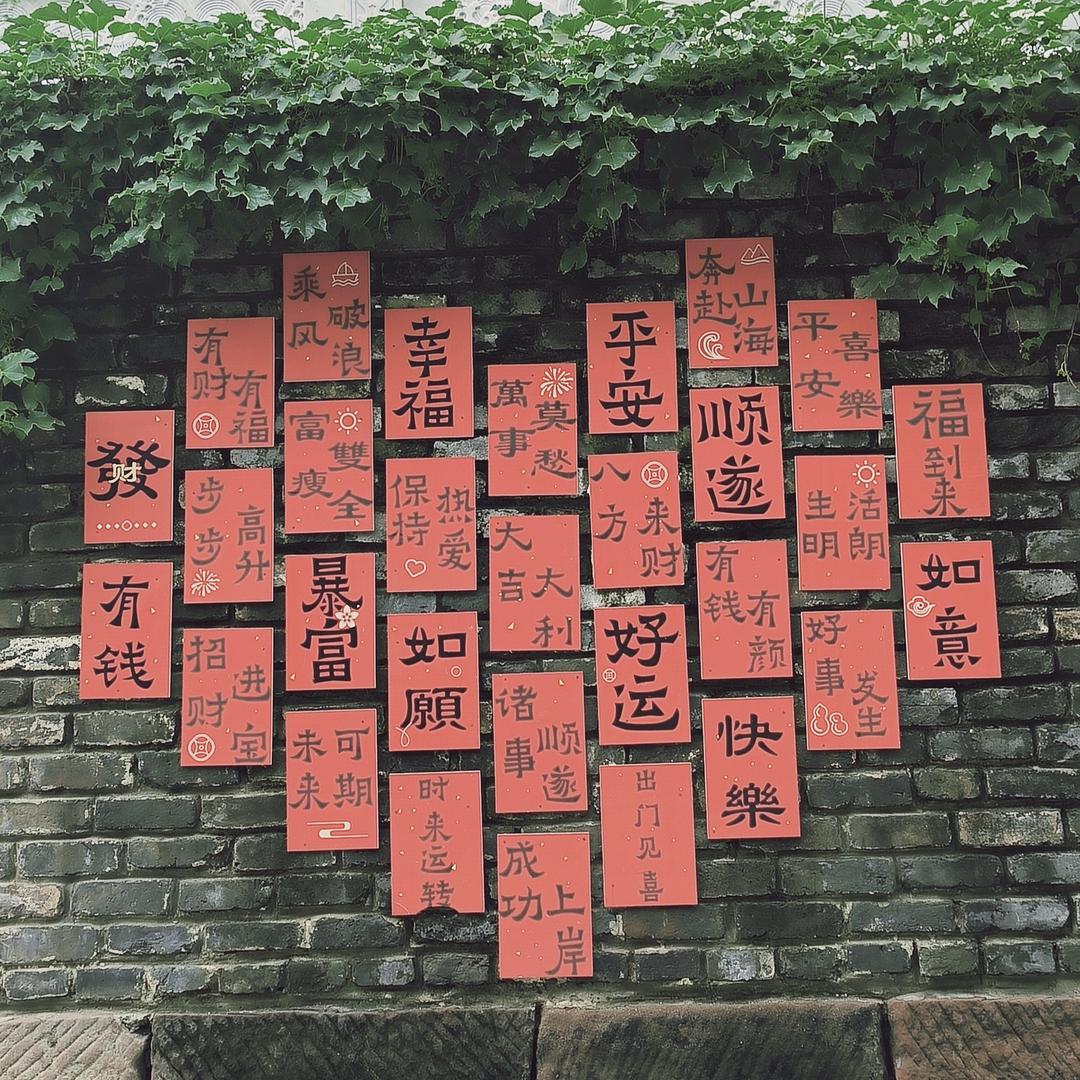 發财
有钱
有财有福
步步高升
招财进宝
乘风破浪
富雙瘦全
暴富
未来可期
幸福
保持热爱
如願
时来运转
萬事莫愁
大吉大利
诸事顺遂
成功上岸
平安
八方来财
好运
出门见喜
奔赴山海
顺遂
有钱有颜
快樂
平安喜樂
生明活朗
好事发生
福到来
如意